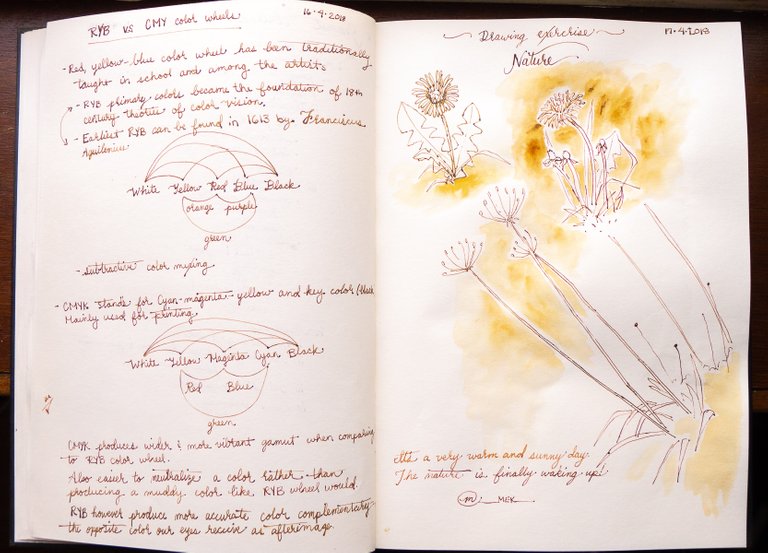 RYB vs CMY color wheels
16.4.2018
- Red, yellow-blue color wheel has been traditionally
taught in school and among the artists
- RYB primary colors became the foundation of 18th
century theories of color vision.
- Earliest RYB can be found in 1613 by Franciscus
Aguilonius
White Yellow Red Blue Black
orange purple
green
- subtractive color mixing
- CMYK stands for Cyan-magenta-yellow and key color (black
Mainly used for printing
White Yellow Maginta Cyan Black
Red Blue
green
CMYK produces wider & more vibrant gamut when comparing
to RYB color wheel.
Also easier to neutralize a color rather than
producing a muddy color like RYB wheel would.
RYB however produce more accurate color complementary
the opposite color our eyes receive as afterimage.
Drawing exercise
17.4.2018
Nature
It's a very warm and sunny day.
The nature is finally waking up!
m MEK